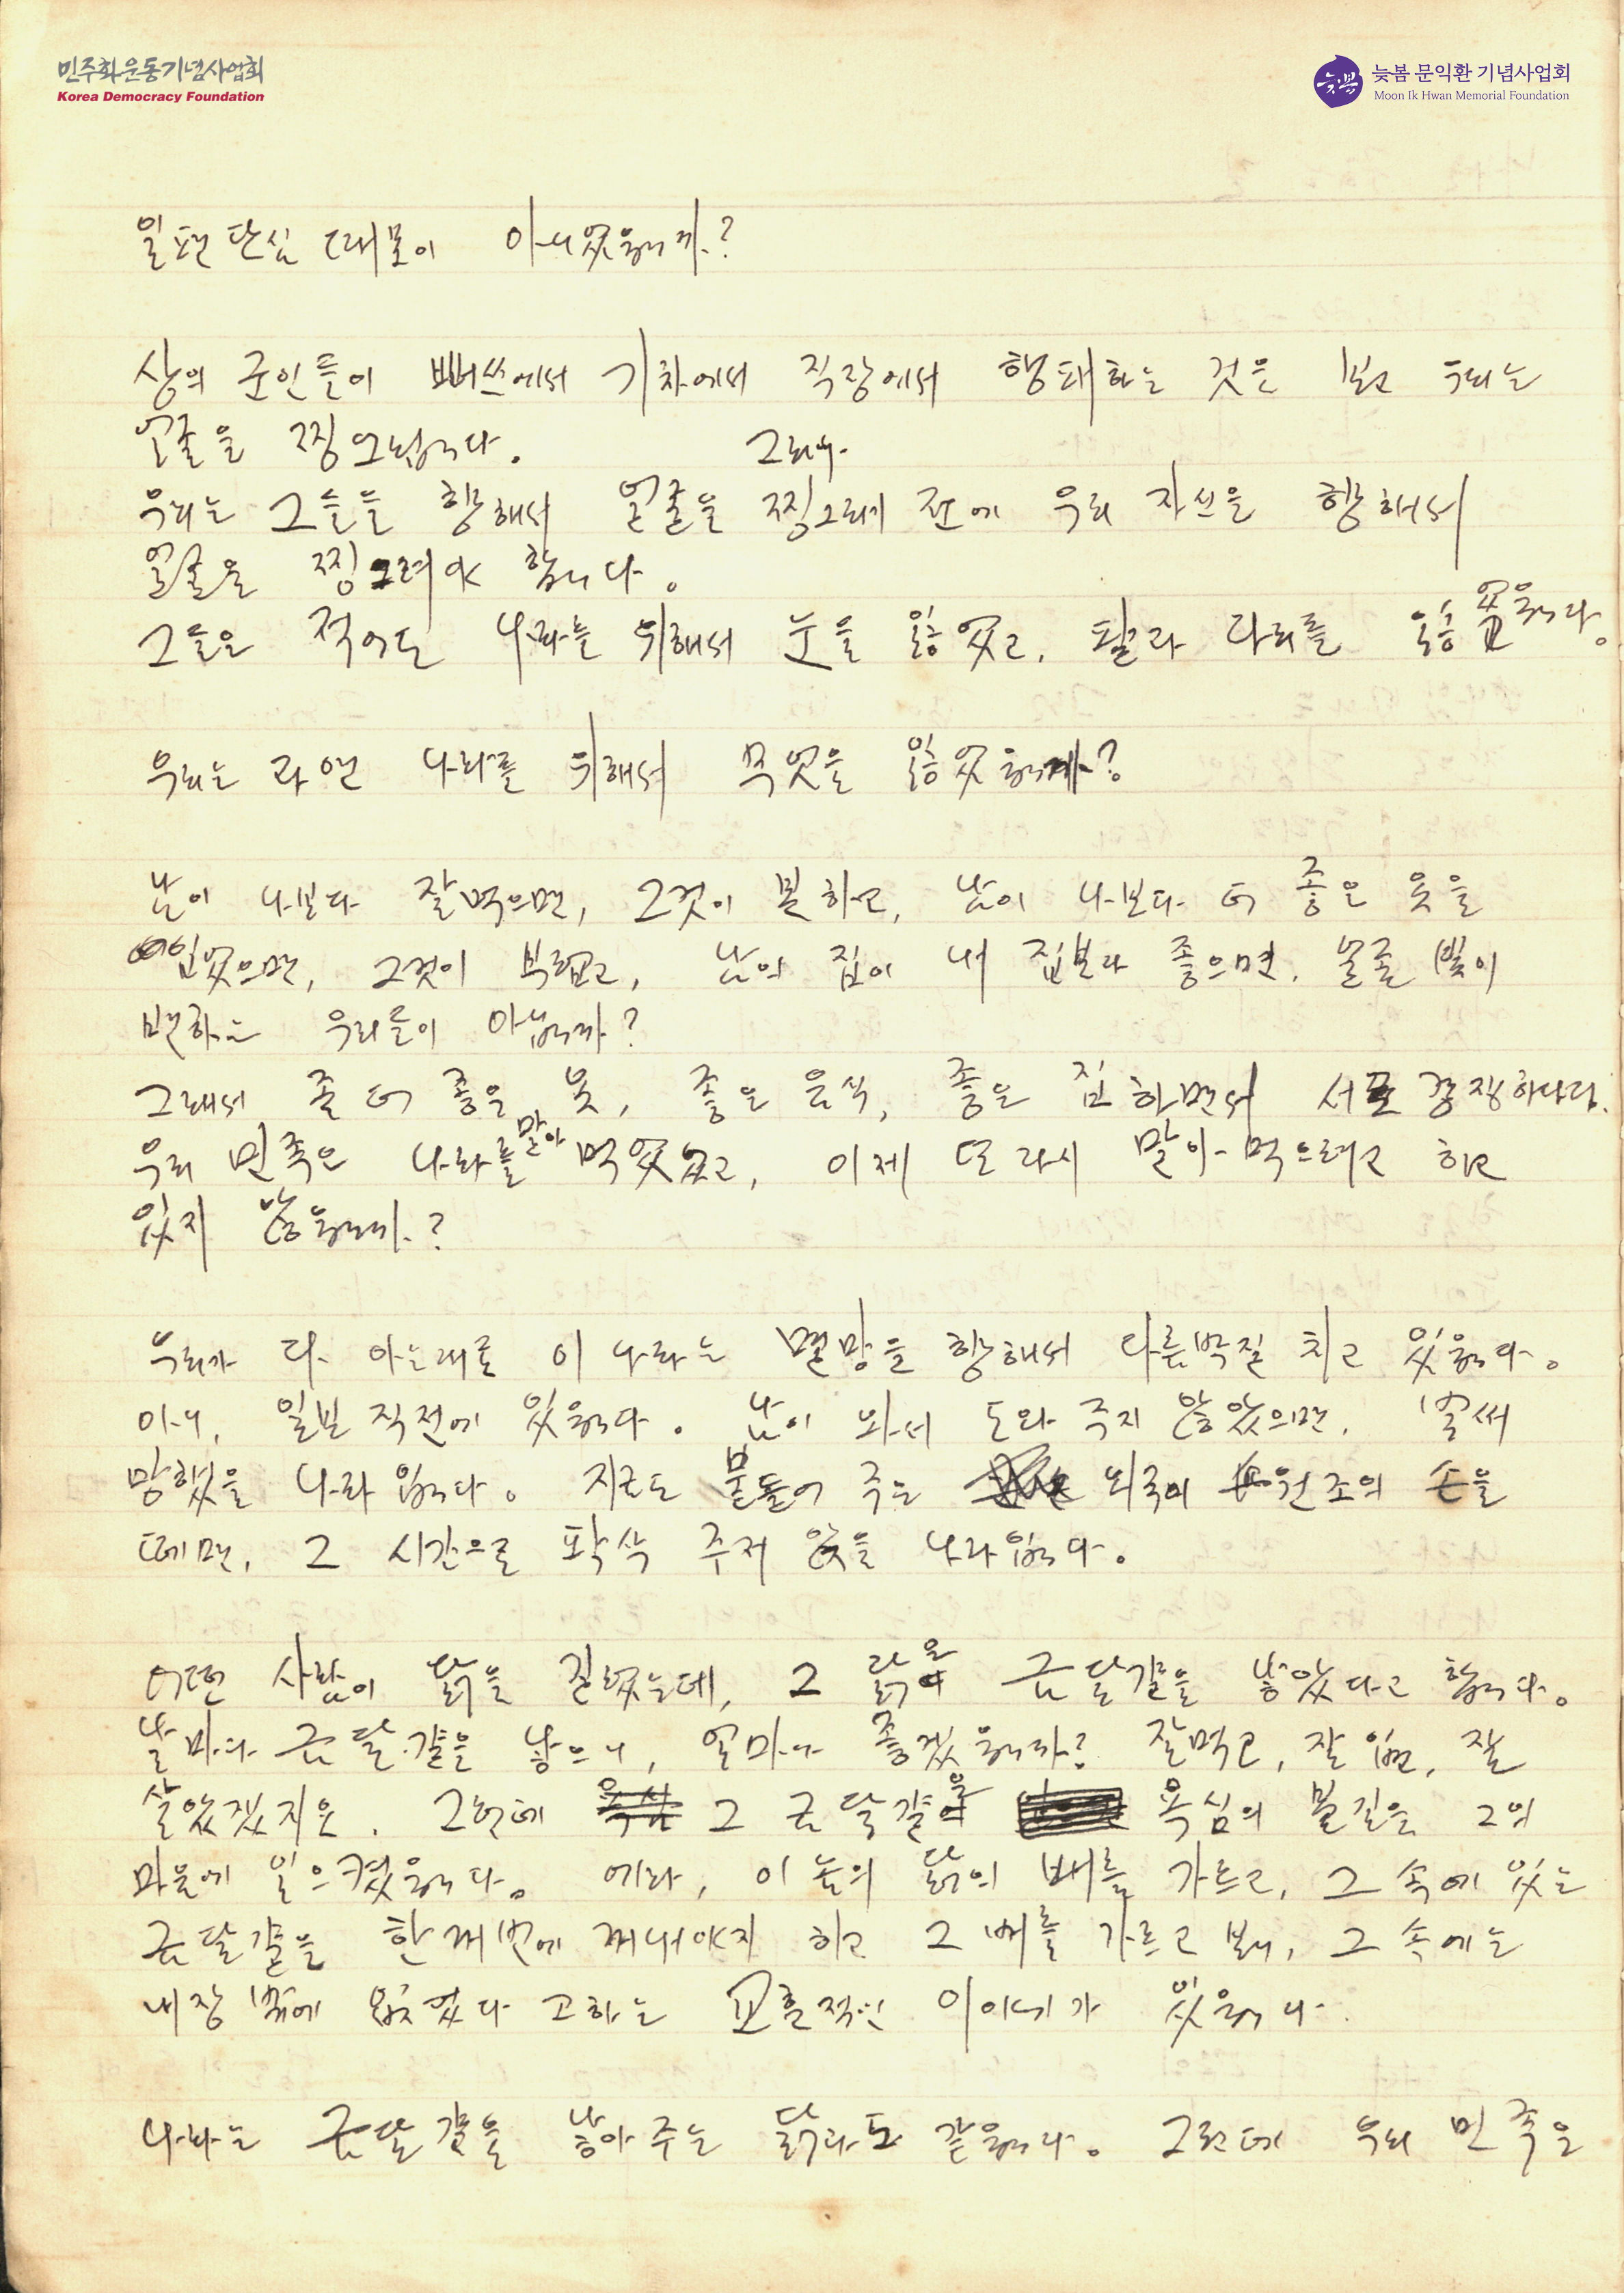 민주화운동기념사업회
Korea Democracy Foundation
늦봄 문익환 기념사업회
Moon Ik Hwan Memorial Foundation
일편단심 때문이 아니었읍니까?
상의 군인들이 뻐쓰에서 기차에서 직장에서 행패하는 것을 보고 우리는
얼굴을 찡그립니다. 그러나
우리는 그들을 향해서 얼굴을 찡그리기 전에 우리 자신을 향해서
얼굴을 찡그려야 합니다.
그들은 적어도 나라를 위해서 눈을 잃었고, 팔과 다리를 잃었읍니다.
우리는 과연 나라를 위해서 무엇을 잃었읍니까?
남이 나보다 잘먹으면, 그것이 분하고, 남이 나보다 더 좋은 옷을
입었으면, 그것이 부럽고, 남의 집이 내 집보다 좋으면, 얼굴 빛이
변하는 우리들이 아닙니까?
그래서 좀 더 좋은 옷, 좋은 음식, 좋은 집 하면서 서로 경쟁하다가.
우리 민족은 나라를 말아 먹었었고, 이제 또 다시 말아 먹으려고 하고
있지 않읍니까?
우리가 다 아는대로 이 나라는 멸망을 향해서 다름박질 치고 있읍니다.
아니, 일보 직전에 있읍니다. 남이 와서 도와 주지 않았으면, 벌써
망했을 나라 입니다. 지금도 붙들어 주는 외국의 원조의 손을
떼면, 그 시간으로 팍삭 주저 앉을 나라입니다.
어떤 사람이 닭을 길렀는데, 그 닭은 금달걀을 낳았다고 합니다.
날마다 금달걀을 낳으니, 얼마나 좋겠읍니까? 잘먹고, 잘 입고, 잘
살았겠지요. 그런데 그 금달걀은 욕심의 불길을 그의
마음에 일으켰읍니다. 에라, 이 놈의 닭의 배를 가르고, 그 속에 있는
금달걀을 한꺼번에 꺼내야지 하고 그 배를 가르고 보니, 그 속에는
내장 밖에 없었다고 하는 교훈적인 이야기가 있읍니다.
나라는 금달걀을 낳아 주는 닭과도 같읍니다. 그런데 우리 민족은